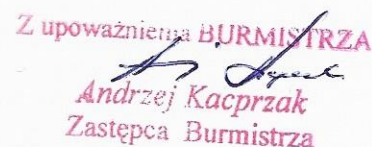 Z upoważnienia BURMISTRZA
Andrzej Kacprzak
Zastępca Burmistrza